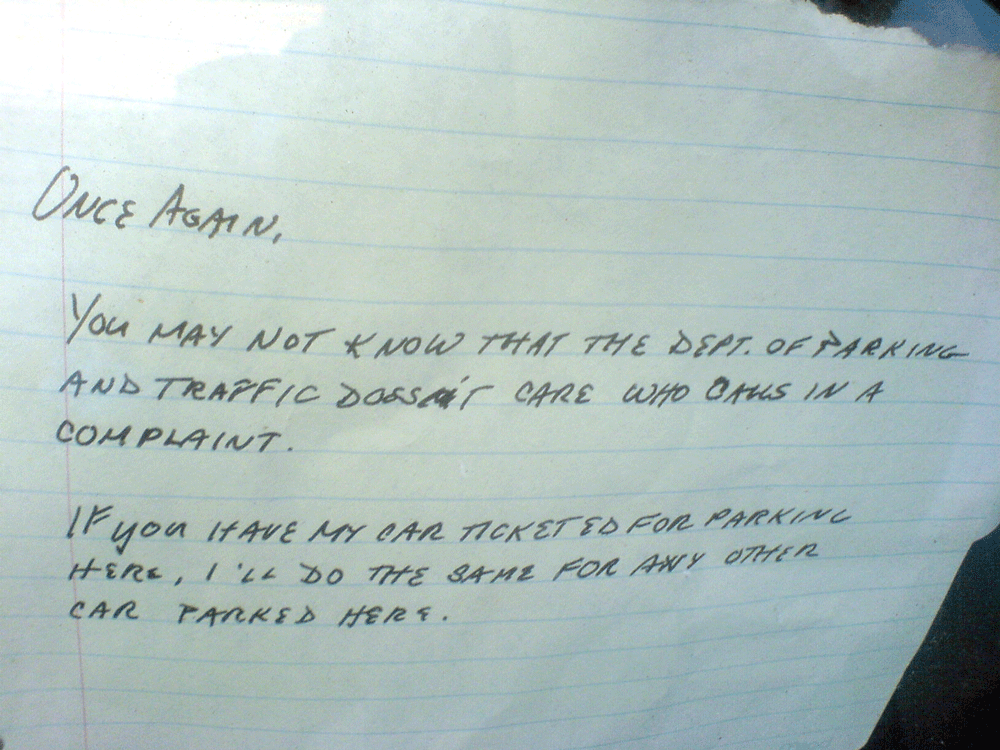 Once Again,
You may not know that the Dept. of Parking
and Traffic doesn't care who calls in a
complaint.
If you have my car ticketed for parking
here, I'll do the same for any other
car parked here.